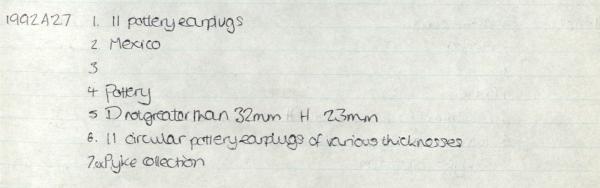 1992A27 1. 11 pottery earplugs
2 Mexico
3
4 Pottery
5 D not greater than 32mm H 23mm
6. 11 circular pottery earplugs of various thicknesses
7. a Pyke collection